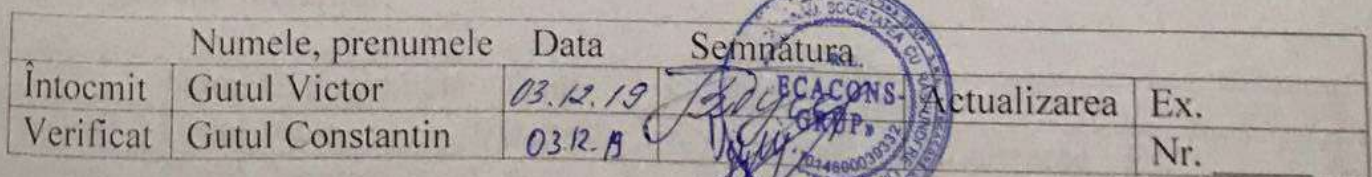 Numele, prenumele Data Semnătura
Întocmit Gutul Victor 03.12.19 Actualizarea Ex.
Verificat Gutul Constantin 03.12.19 Nr.
SOCIETATEA CU RĂSPUNDERE
ECACONS-
GRUP»